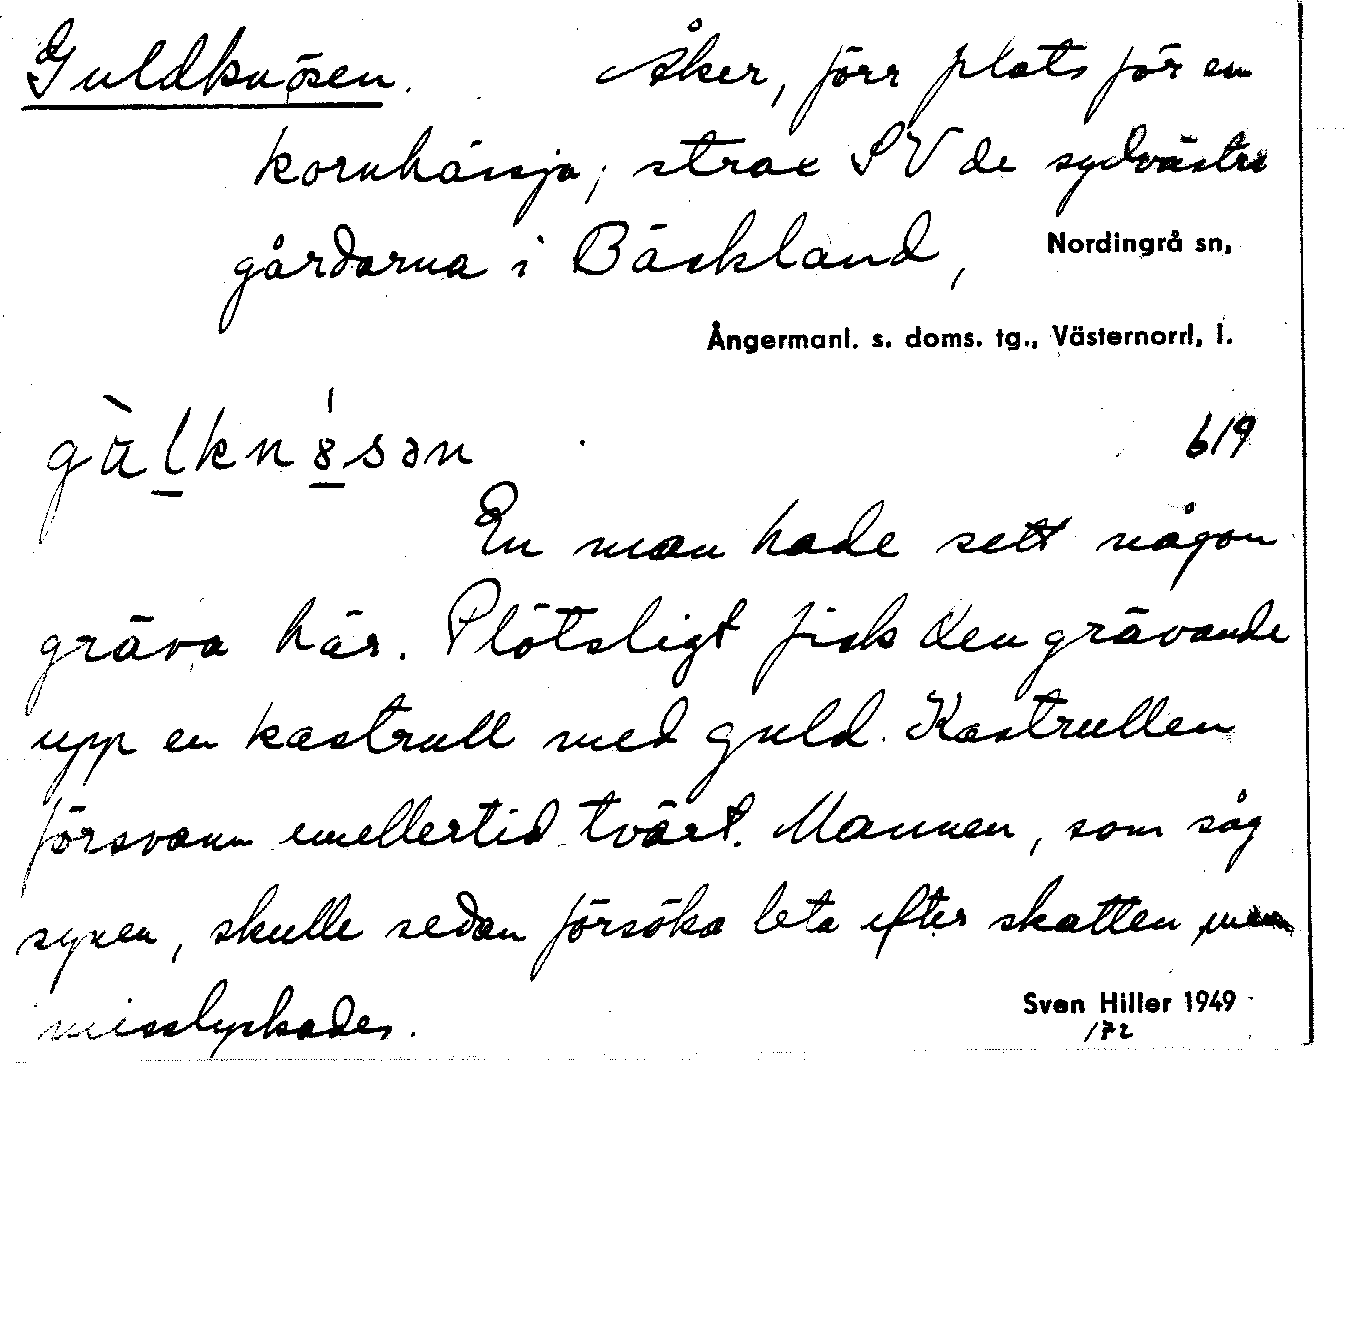 Guldknösen. Åker, förr plats för en
kornhässja, strax SV de sydvästra
gårdarna i Bäckland, Nordingrå sn,
Ångermanl. s. doms. tg., Västernorrl. l.
gù̈lkn8́sən 619
En man hade sett någon
gräva här. Plötsligt fick den grävande
upp en kastrull med guld. Kastrullen
försvann emellertid tvärt. Mannen, som såg
synen, skulle sedan försöka leta efter skatten men
misslyckades. Sven Hiller 1949
172